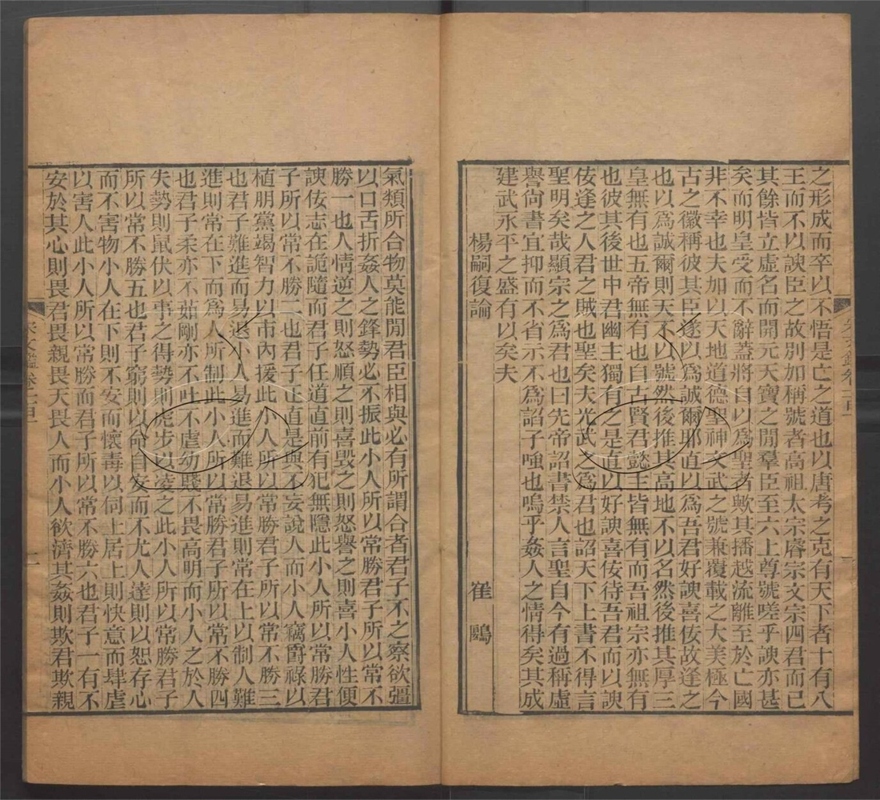 之形成而卒以不悟是亡之道也以唐考之克有天下者十有八
王而不以諛臣之故別加稱號者高祖太宗睿宗文宗四君而已
其餘皆立虛名而開元天寶之間羣臣至六上尊號嗟乎諛亦甚
矣而明皇受而不辭蓋將自以為聖者歟其播越流離至於亡國
非不幸也夫加以天地道德聖神文武之號兼覆載之大美極今
古之徽稱彼其臣遂以為誠爾耶直以為吾君好諛喜佞故逢之
也以為誠爾則天不以號然後推其高地不以名然後推其厚三
皇無有也五帝無有也自古賢君懿王皆無有而吾祖宗亦無有
也彼其後世中君幽主獨有之是直以好諛喜佞待吾君而以諛
佞逢之人君之賊也聖矣夫光武之為君也詔天下上書不得言
聖明矣哉顯宗之為君也曰先帝詔書禁人言聖自今有過稱虛
譽尙書宜抑而不省示不為諂子嗤也嗚乎姦人之情得矣其成
建武永平之盛有以矣夫
楊嗣復論 崔鷗
氣類所合物莫能閒君臣相與必有所謂合者君子不之察欲彊
以口舌折姦人之鋒勢必不振此小人所以常勝君子所以常不
勝一也人情逆之則怒順之則喜毀之則怒譽之則喜小人性便
諛佞志在詭隨而君子任道直前有犯無隱此小人所以常勝君
子所以常不勝二也君子正直是與不妄說人而小人竊爵祿以
植朋黨竭智力以市內援此小人所以常勝君子所以常不勝三
也君子難進而易退小人易進而難退易進則常在上以制人難
進則常在下而為人所制此小人所以常勝君子所以常不勝四
也君子柔亦不茹剛亦不吐不虐幼賤不畏高明而小人之於人
失勢則鼠伏以事之得勢則虎步以凌之此小人所以常勝君子
所以常不勝五也君子窮則以命自安而不尤人達則以恕存心
而不害物小人在下則不安而懷毒以伺上居上則快意而肆虐
以害人此小人所以常勝而君子所以常不勝六也君子一有不
安於其心則畏君畏親畏天畏人而小人欲濟其姦則欺君欺親